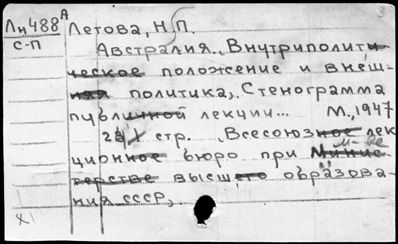 Лн488А Летова, Н.П.
С-П
Австралия. Внутриполити-
ческое положение и внеш-
няя политика. Стенограмма
публичной лекции... М., 1947
28 стр. Всесоюзное лек
ционное бюро при Минис
м-ве
терстве высшего образова-
ния СССР,
XI